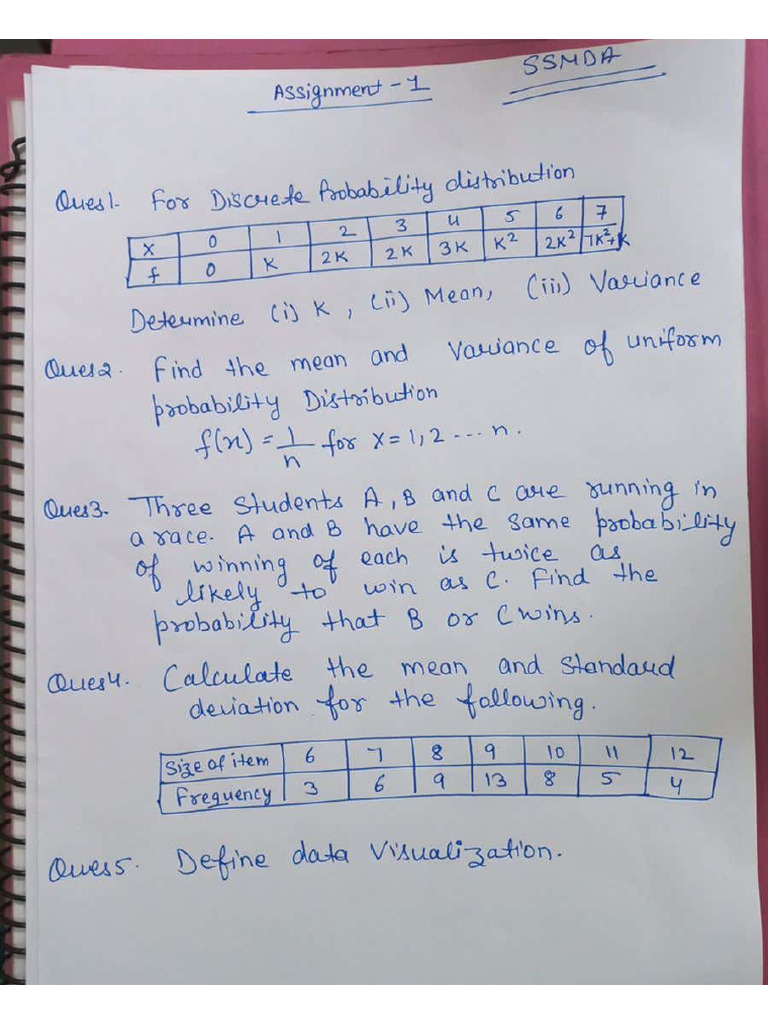 SSMDA
Assignment - 1
Ques1. For Discrete Probability distribution
X 0 1 2 3 4 5 6 7
f 0 K 2K 2K 3K K² 2K² 7K²+K
Determine (i) K, (ii) Mean, (iii) Variance
Ques2. Find the mean and Variance of uniform
probability Distribution
f(x) = 1/n for x = 1, 2 --- n.
Ques3. Three Students A, B and C are running in
a race. A and B have the same probability
of winning of each is twice as
likely to win as C. Find the
probability that B or C wins.
Ques4. Calculate the mean and Standard
deviation for the following.
Size of item 6 7 8 9 10 11 12
Frequency 3 6 9 13 8 5 4
Ques5. Define data Visualization.